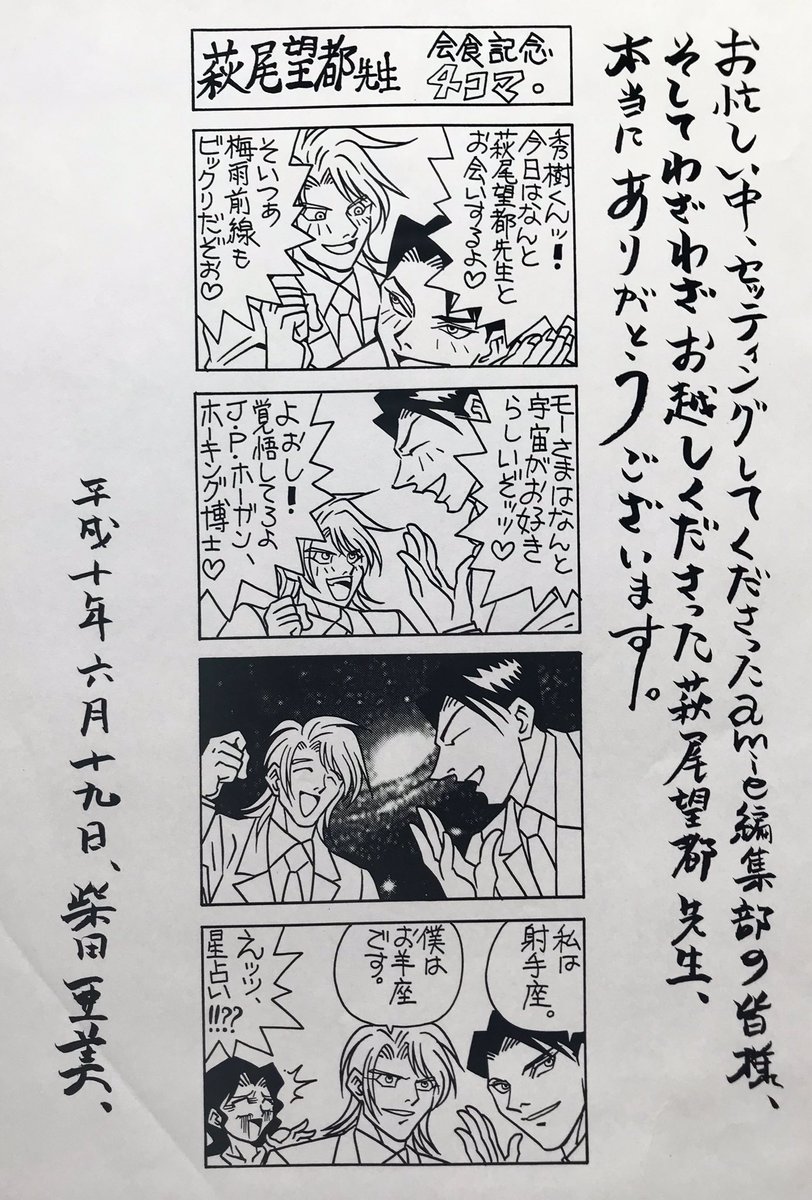 お忙しい中、セッティングしてくださったamie編集部の皆様、
そしてわざわざお越しくださった萩尾望都先生、
本当にありがとうございます。
萩尾望都先生
会食記念
4コマ。
秀樹くんッ!
今日はなんと
萩尾望都先生と
お会いするよ♡
そいつぁ
梅雨前線も
ビックリだぞぉ♡
モーさまはなんと
宇宙がお好き
らしいぞッッ♡
よおし!
覚悟してろよ
J・P・ホーガン、
ホーキング博士♡
私は
射手座。
僕は
お羊座
です。
えッッ、
星占い
!!??
平成十年六月十九日、柴田亜美、